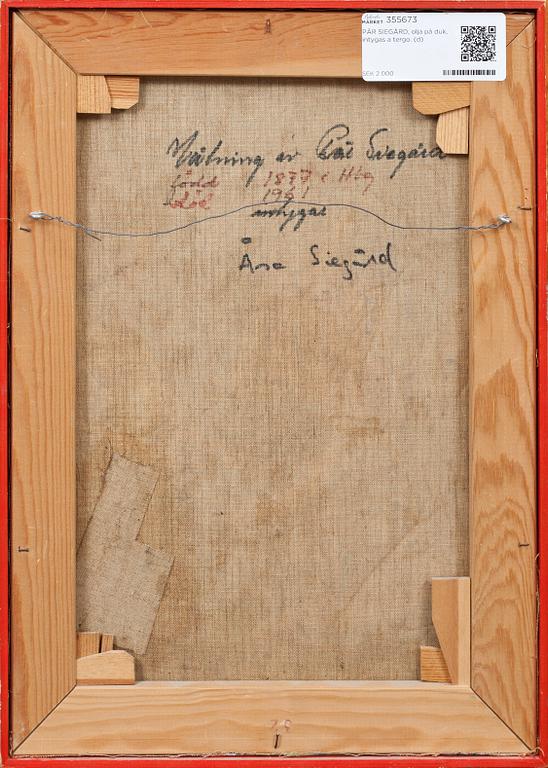 MARKET 355673
PÄR SIEGÅRD, olja på duk,
intygas a tergo. (d)
SEK 2.000
Målning av Pär Siegård
född 1877 i Hbg
död 1961
intygar
Åsa Siegård